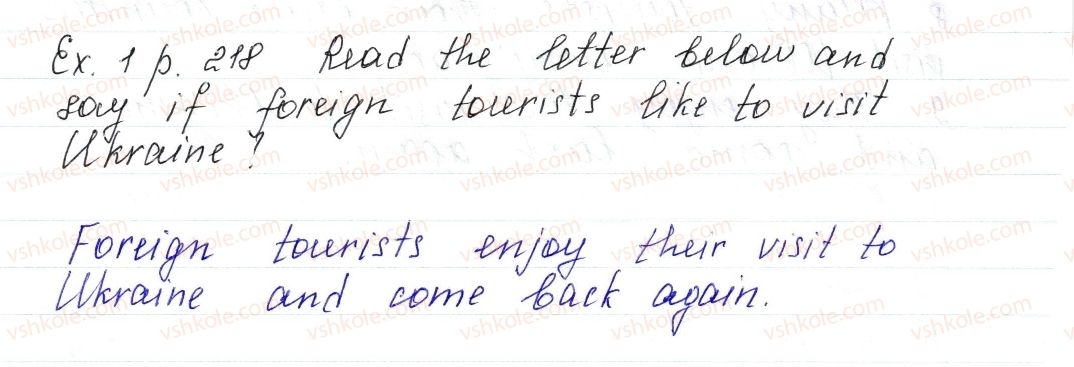 Ex. 1 p. 218 Read the letter below and
say if foreign tourists like to visit
Ukraine?
Foreign tourists enjoy their visit to
Ukraine and come back again.